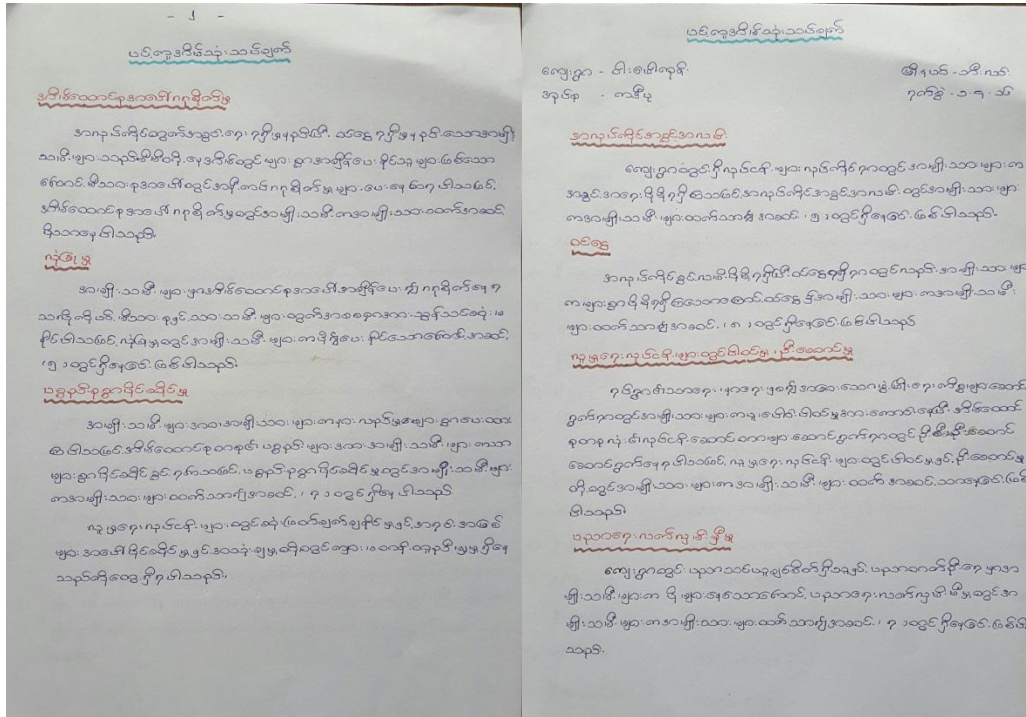 - ၂ -
ပင့်ကူအိမ်သုံးသပ်ချက်
အိမ်ထောင်စုအပေါ်ဂရုစိုက်မှု
အလုပ်ကိုင်တွက်အခွင့်ရေး ရရှိမှုနည်းပြီး ဝင်ငွေ ရရှိမှုနည်းသောအမျိုး
သမီးများသည်မိမိတို့နေအိမ်တွင်များစွာအချိန်ပေးနိုင်သူများဖြစ်သော
ကြောင့် မိသားစုအပေါ်တွင်အနီးကပ်ဂရုစိုက်မှုများပေးနေရပါသဖြင့်
အိမ်ထောင်စုအပေါ်ဂရုစိုက်မှုတွင်အမျိုးသမီးကအမျိုးသားထက်အဆင့်
ပိုသာနေပါသည်။
လုံခြုံမှု
အမျိုးသမီးများမှာအိမ်ထောင်စုအပေါ်အချိန်ပေး၍ဂရုစိုက်နေရ
သကဲ့သို့ မိသားစုနှင့်သားသမီးများတွက်အစစအရာရာညွှန်သင်ဆုံးမ
နိုင်ပါသဖြင့် လုံခြုံမှုတွင်အမျိုးသမီးများကပိုမိုပေးနိုင်သောကြောင့်အဆင့်
(၅)တွင်ရှိနေခြင်းဖြစ်ပါသည်။
ပစ္စည်းဥစ္စာပိုင်ဆိုင်မှု
အမျိုးသမီးများအားအမျိုးသားများကနားလည်မှုများစွာပေးထား
ကြပါသဖြင့်အိမ်ထောင်စုတစုစီးပစ္စည်းများအားအမျိုးသမီးများကသာ
များစွာပိုင်ဆိုင်ခွင့်ရကြသဖြင့်ပစ္စည်းဥစ္စာပိုင်ဆိုင်မှုတွင်အမျိုးသမီးများ
ကအမျိုးသားများထက်သာ၍အဆင့်(၇)တွင်ရှိနေပါသည်
လူမှုရေးလုပ်ငန်းများတွင်ဆုံးဖြတ်ချက်ချနိုင်မှုနှင့်အရင်းအမြစ်
များအပေါ်ပိုင်ဆိုင်မှုနှင့်အသုံးချမှုတို့တွင်ကျား၊မတန်းတူညီမျှမှုရှိနေ
သည်ကိုတွေ့ရှိရပါသည်။
ပင့်ကူအိမ်သုံးသပ်ချက်
ကျေးရွာ - ငါးပေါက်
အုပ်စု - တနီမူ
မြို့နယ် - ဘီးလင်း
အလုပ်ကိုင်အခွင့်အလမ်း
ကျေးရွာတွင်ရှိလုပ်ငန်းများလုပ်ကိုင်ရာတွင်အမျိုးသားများက
အခွင့်အရေးပိုမိုရရှိကြသဖြင့်အလုပ်ကိုင်အခွင့်အလမ်းတွင်အမျိုးသားများ
ကအမျိုးသမီးများထက်သာ၍အဆင့်(၅)တွင်ရှိနေခြင်းဖြစ်ပါသည်။
ဝင်ငွေ
အလုပ်ကိုင်ခွင့်လမ်းပိုမိုရရှိပြီးဝင်ငွေရရှိရာတွင်လည်းအမျိုးသားများ
ကများစွာပိုမိုရရှိကြသောကြောင့်ဝင်ငွေ၌အမျိုးသားများကအမျိုးသမီး
များထက်သာ၍အဆင့်(၈)တွင်ရှိနေခြင်းဖြစ်ပါသည်
လူမှုရေးလုပ်ငန်းများတွင်ပါဝင်မှု၊ ဦးဆောင်မှု
ရပ်ရွာဘာသာရေး၊နာရေး၊မှစ၍အခြားသောပွဲပြီးရေးကိစ္စများဆောင်
ရွက်ရာတွင်အမျိုးသားများကပူးပေါင်းပါဝင်မှုအားကောင်းနေပြီးအိမ်ထောင်
စုတစုလုံး၏လုပ်ငန်းဆောင်တာများဆောင်ရွက်ရာတွင်ဦးစီးဦးဆောင်
ဆောင်ရွက်နေရပါသဖြင့်လူမှုရေးလုပ်ငန်းများတွင်ပါဝင်မှုနှင့်ဦးဆောင်မှု
တို့တွင်အမျိုးသားများကအမျိုးသမီးများထက်အဆင့်သာနေခြင်းဖြစ်
ပါသည်။
ပညာရေးလက်လှမ်းမှီမှု
ကျေးရွာတွင်ပညာသင်ယူချင်စိတ်ရှိသူနှင့်ပညာတတ်ဦးရေမှာအ
မျိုးသမီးများကပိုများနေသောကြောင့်ပညာရေးလက်လှမ်းမီမှုတွင်အ
မျိုးသမီးများကအမျိုးသားများထက်သာ၍အဆင့်(၇)တွင်ရှိနေခြင်းဖြစ်ပါ
သည်။